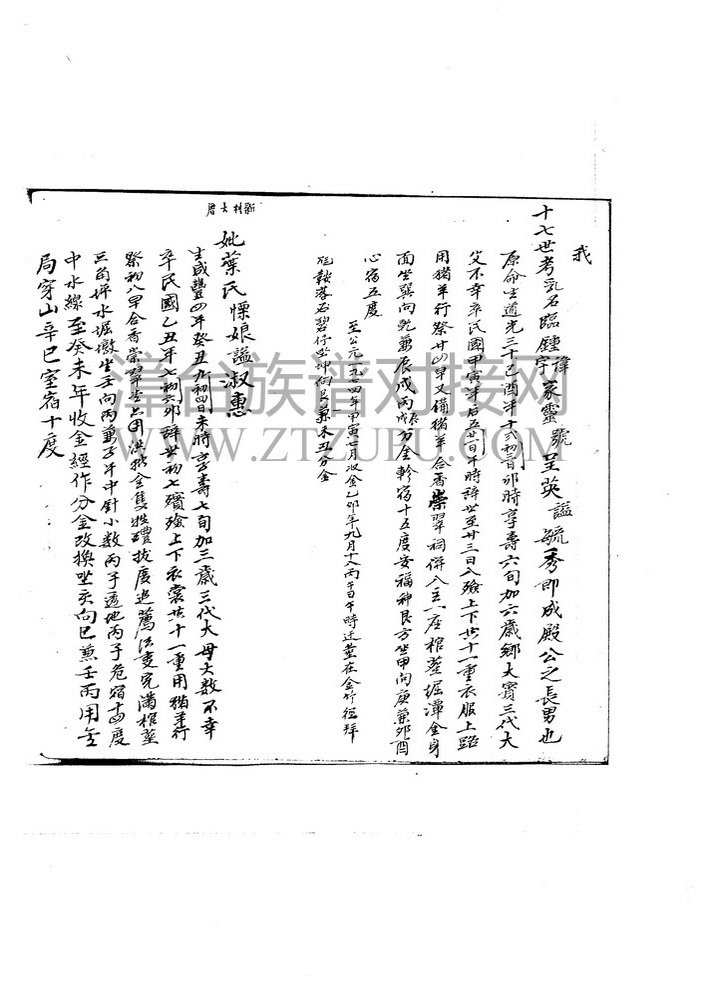 我
十七世考乳名臨鍾諱字家靈號呈英諡毓秀即成殿公之長男也
原命生道光三十己酉年十弍初三日卯時享壽六旬加六歲鄉大賓三代大
父不幸卒民國甲寅年后五廿一日午時辭世至廿三日入殮上下共十一重衣服上路
用猪羊行祭廿四早又備猪羊合香崇翠祠併入主一座棺塟堀潭金身
面坐巽向乾兼辰戌丙辰丙戌分金軫宿十五度安福神艮方坐甲向庚兼卯酉
心宿五度
至公元一九七四年甲寅七月收金乙卯年九月十八丙午日午時迁葬在金竹徑拜
坐坤向艮兼未丑分金
新村大厝
妣葉氏慄娘諡淑惠
生咸豐四年癸丑九初四日未時享壽七旬加三歲三代大母大数不幸
卒民國乙丑年七初六卯時辭世初七殯殮上下衣裳共十一重用猪羊行
祭初八早合香崇翠堂上用洪 金隻牲禮拔度追薦法事完滿棺塟
三角坪水堀 坐壬向丙兼子午中針小数丙子透地丙子危宿十四度
中水線至癸未年收金經作分金改換坐亥向巳兼壬丙用金
局穿山辛巳室宿十度
漳台族谱对接网
WWW.ZTZUPU.COM